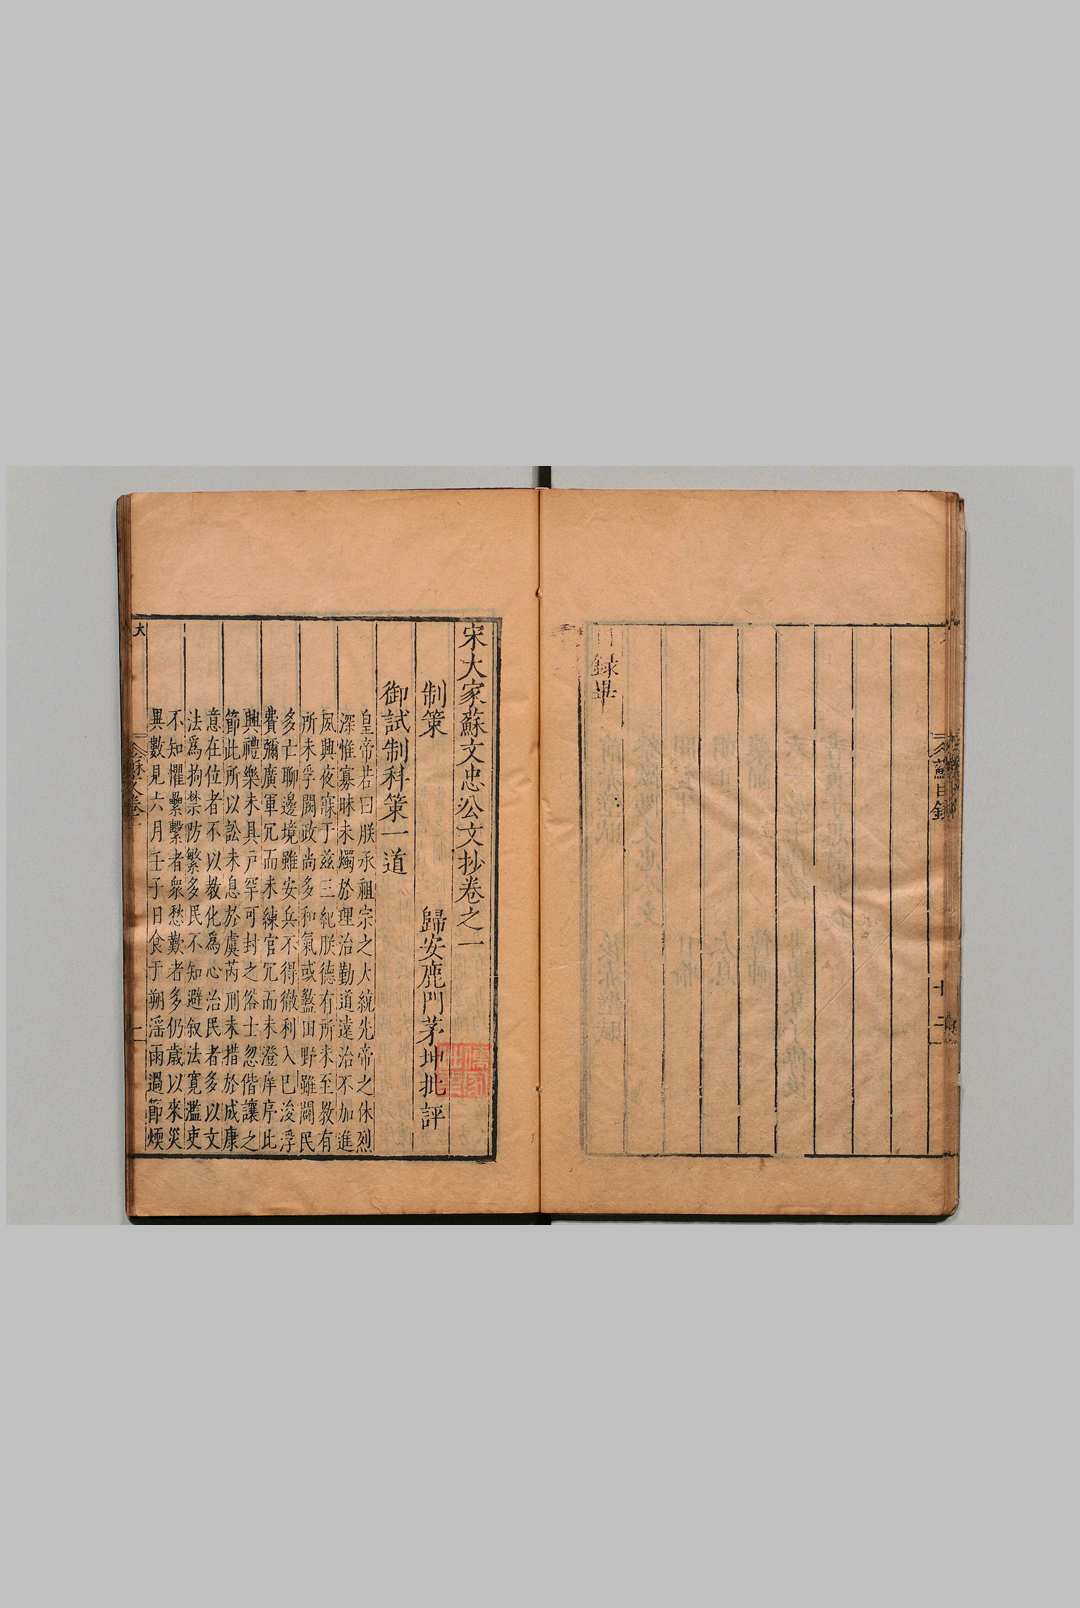 蘇目錄
十二
錄畢
宋大家蘇文忠公文抄卷之一
制策 歸安鹿門茅坤批評
御試制科策一道
皇帝若曰朕承祖宗之大統先帝之休烈
深惟寡昧未燭於理治勤道遠治不加進
夙興夜寐于茲三紀朕德有所未至教有
所未孚闕政尚多和氣或盭田野雖闢民
多亡聊邊境雖安兵不得徹利入巳浚浮
費彌廣軍冗而未練官冗而未澄庠序此
興禮樂未具戶罕可封之俗士忽偕讓之
節此所以訟未息於虞芮刑未措於成康
意在位者不以教化為心治民者多以文
法爲拘禁防繁多民不知避叙法寬濫吏
不知懼纍繫者衆愁歎者多仍歲以來災
異數見六月壬子日食于朔淫雨過節燠